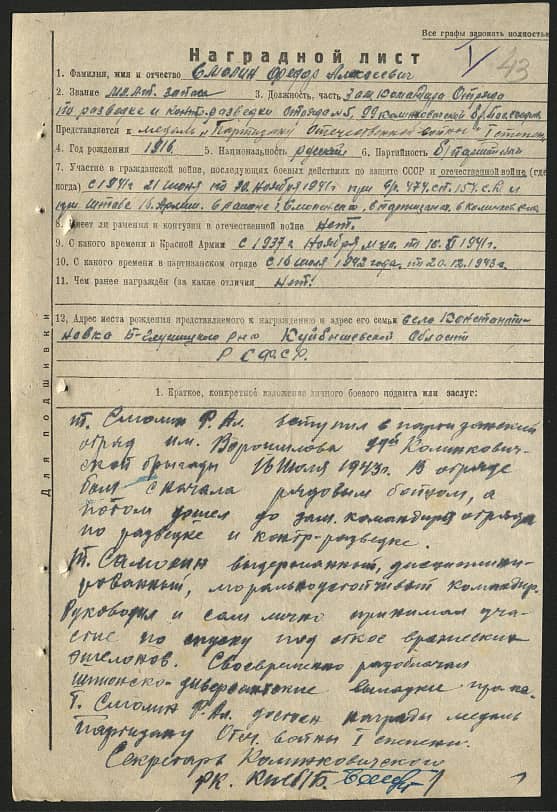 Все графы заполнять полностью
1/ 43
Наградной лист
1. Фамилия, имя и отчество Смолин Федор Алексеевич
2. Звание мл. лт. запаса 3. Должность, часть зам. командира отряда
по разведке и контр-разведки отряда №5, 99 Колижковской п/бригады
Представляется к медаль "Партизану Отечественной войны" I степени
4. Год рождения 1916 5. Национальность русский 6. Партийность б/партийный
7. Участие в гражданской войне, последующих боевых действиях по защите СССР и отечественной войне (где,
когда) с 1941г 21 июня по 30. Ноября 1941г при 474. сп. 157. с.д и
при штабе 16. Армии. в районе г. Смоленска, в партизанах
8. Имеет ли ранения и контузии в отечественной войне Нет.
9. С какого времени в Красной Армии с 1937г Ноября м-ца. по 1941г.
10. С какого времени в партизанском отряде с 16 июля 1942 года, по 20.12.1943г.
11. Чем ранее награждён (за какие отличия Нет!
12. Адрес места рождения представляемого к награждению и адрес его семьи село Константи-
новка Б- р-на Куйбышевской Области
РСФСР.
Для подшивки
1. Краткое, конкретное изложение личного боевого подвига или заслуг:
т. Смолин Ф. Ал. вступил в партизанский
отряд им. Ворошилова
ской бригады 16 Июля 1943г. В отряде
был сначала рядовым бойцом, а
потом дошел до зам. командира отряда
по разведке и контр-разведке.
т. Смолин выдержанный, дисциплини-
рованный, моральноустойчивый командир.
Руководил и сам лично принимал уча-
стие по спуску под откос вражеских
эшелонов. Своевременно разоблачал
шпионско-диверсантские вылазки
Т. Смолин Ф. Ал. достоен награды медаль
Партизану Отеч. войны I степени.
Секретарь
РК. КП(б)Б.